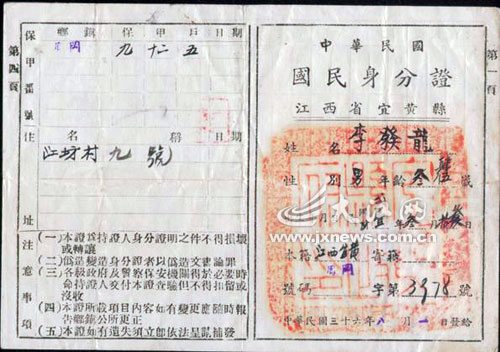 中華民國
國民身分證
江西省宜黃縣
姓名 李發龍
性別 男 年齡 叁 歲
月 日
本籍 江西 寄籍
鳳岡
號碼 字第 3978 號
中華民國三十六年八月一日發給
第一頁
第四頁
保甲番號
鄉鎮保甲戶日期
鳳岡 九 十二 五
住址
名稱 日期
江坊村九號
注意事項
(一)本證為持證人身分證明之件不得損壞
或轉讓
(二)偽造變造身分證者以偽造文書論罪
(三)各級政府及警察保安機關得於必要時
命持證人交付本證查驗但不得扣留或
沒收
(四)本證所載項目內容如有變更應隨時報
告鄉鎮公所更正
(五)本證如有遺失須立即依法呈報補發
大江网